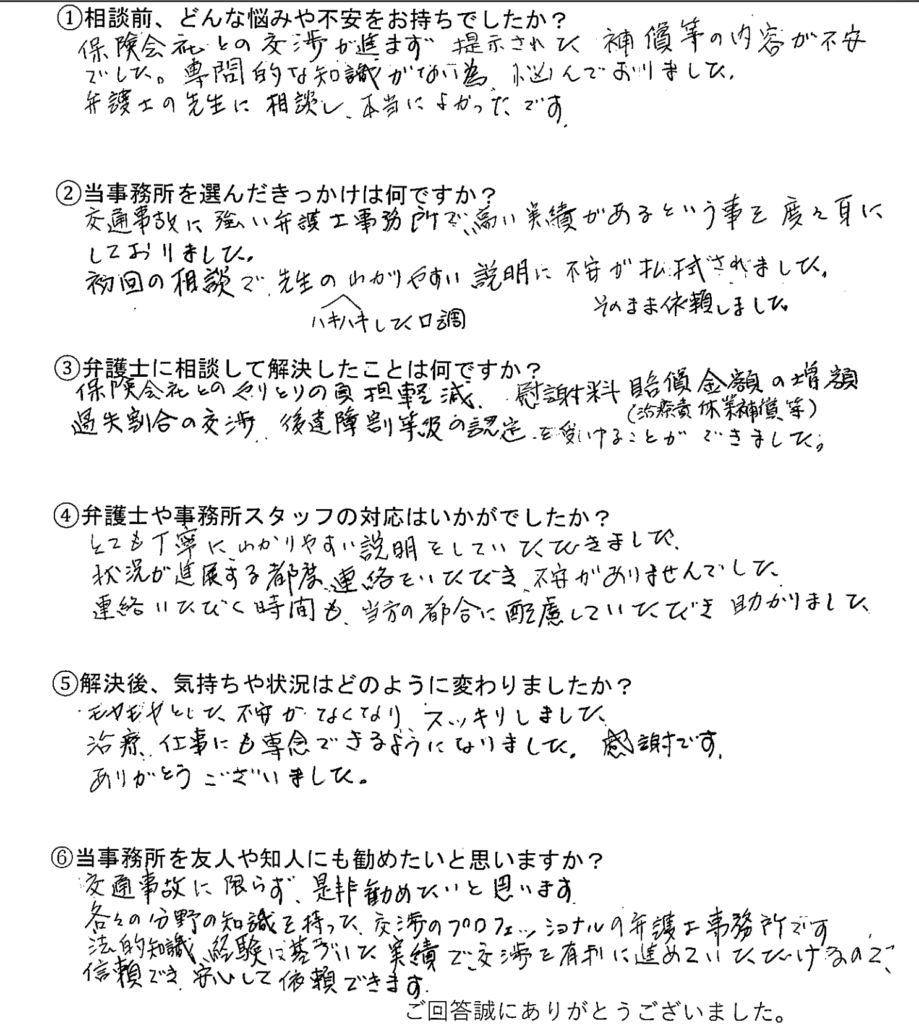 ①相談前、どんな悩みや不安をお持ちでしたか？
保険会社との交渉が進まず 提示された 補償等の内容が不安
でした。専門的な知識がない為、悩んでおりました。
弁護士の先生に 相談し、本当によかったです。
②当事務所を選んだきっかけは何ですか？
交通事故に 強い弁護士事務所で、高い実績があるという事を 度々耳に
しておりました。
初回の相談で、先生の わかりやすい 説明に 不安が払拭されました。
ハキハキした口調
そのまま依頼しました。
③弁護士に相談して解決したことは何ですか？
保険会社とのやりとりの負担軽減、慰謝料 賠償金額の増額
(治療費 休業補償等)
過失割合の交渉、後遺障割等級の認定 を受けることが できました。
④弁護士や事務所スタッフの対応はいかがでしたか？
とても丁寧に わかりやすい説明をしていただきました。
状況が進展する都度、連絡をいただき、不安がありませんでした。
連絡いただく時間も、当方の都合に配慮していただき 助かりました。
⑤解決後、気持ちや状況はどのように変わりましたか？
モヤモヤとした、不安が なくなり、スッキリしました。
治療、仕事にも専念できるようになりました。感謝です。
ありがとう ございました。
⑥当事務所を友人や知人にも勧めたいと思いますか？
交通事故に 限らず、是非勧めたいと 思います
各々の分野の知識を持った、交渉のプロフェッショナルの弁護士事務所です
法的知識、経験に基づいた 実績で、交渉を有利に進めていただけるので、
信頼でき、安心して 依頼できます。
ご回答誠にありがとうございました。